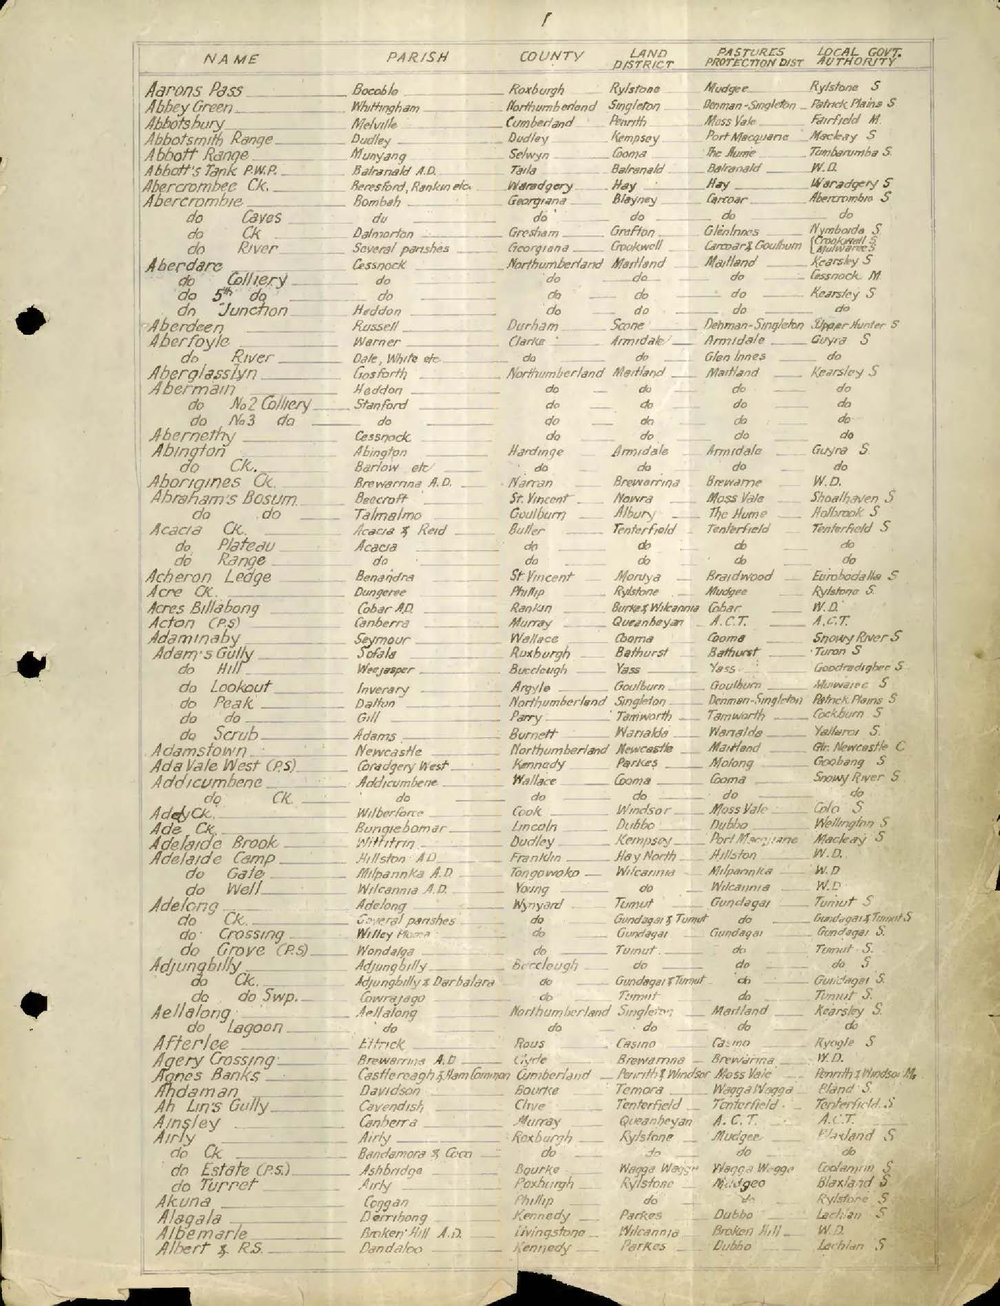 1
NAME PARISH COUNTY LAND DISTRICT PASTURES PROTECTION DIST LOCAL GOVT. AUTHORITY
Aarons Pass Bocoble Roxburgh Rylstone Mudgee Rylstone S
Abbey Green Whittingham Northumberland Singleton Denman-Singleton Patrick Plains S
Abbotsbury Melville Cumberland Penrith Moss Vale Fairfield M.
Abbotsmith Range Dudley Dudley Kempsey Port Macquarie Macleay S
Abbott Range Munyang Selwyn Cooma The Hume Tumbarumba S.
Abbott's Tank P.W.P. Balranald A.D. Taila Balranald Balranald W.D.
Abercrombee Ck. Beresford, Rankin etc. Waradgery Hay Hay Waradgery S
Abercrombie Bombah Georgiana Blayney Carcoar Abercrombie S
do Caves do do do do do
do Ck Dalmorton Gresham Grafton Glen Innes Nymboida S
do River Several parishes Georgiana Crookwell Carcoar & Goulburn (Crookwell S Mulwaree S
Aberdare Cessnock Northumberland Maitland Maitland Kearsley S
do Colliery do do do do Cessnock M
do 5th do do do do do Kearsley S
do Junction Heddon do do do do
Aberdeen Russell Durham Scone Denman-Singleton Upper Hunter S
Aberfoyle Warner Clarke Armidale Armidale Guyra S
do River Dale, White etc do do Glen Innes do
Aberglasslyn Gosforth Northumberland Maitland Maitland Kearsley S
Abermain Heddon do do do do
do No 2 Colliery Stanford do do do do
do No 3 do do do do do do
Abernethy Cessnock do do do do
Abington Abington Hardinge Armidale Armidale Guyra S
do Ck. Barlow etc do do do do
Aborigines Ck. Brewarrina A.D. Narran Brewarrina Brewarrine W.D.
Abraham's Bosum Beecroft St. Vincent Nowra Moss Vale Shoalhaven S
do do Talmalmo Goulburn Albury The Hume Holbrook S
Acacia Ck. Acacia & Reid Buller Tenterfield Tenterfield Tenterfield S
do Plateau Acacia do do do do
do Range do do do do do
Acheron Ledge Benandra St Vincent Moruya Braidwood Eurobodalla S
Acre Ck. Dungeree Phillip Rylstone Mudgee Rylstone S.
Acres Billabong Cobar A.D. Rankin Burke & Wilcannia Cobar W.D.
Acton (P.S) Canberra Murray Queanbeyan A.C.T. A.C.T.
Adaminaby Seymour Wallace Cooma Cooma Snowy River S
Adam's Gully Sofala Roxburgh Bathurst Bathurst Turon S
do Hill Weejasper Buccleugh Yass Yass Goodradigbee S
do Lookout Inverary Argyle Goulburn Goulburn Mulwaree S
do Peak Dalton Northumberland Singleton Denman-Singleton Patrick Plains S
do do Gill Parry Tamworth Tamworth Cockburn S
do Scrub Adams Burnett Warialda Warialda Yallaroi S.
Adamstown Newcastle Northumberland Newcastle Maitland Gtr. Newcastle C
Ada Vale West (P.S) Coradgery West Kennedy Parkes Molong Goobang S
Addicumbene Addicumbene Wallace Cooma Cooma Snowy River S
do Ck. do do do do do
Addy Ck. Wilberforce Cook Windsor Moss Vale Colo S
Ade Ck. Bungiebomar Lincoln Dubbo Dubbo Wellington S
Adelaide Brook Wittitrin Dudley Kempsey Port Macquarie Macleay S
Adelaide Camp Hillston A.D. Franklin Hay North Hillston W.D.
do Gate Milparinka A.D Tongowoko Wilcannia Milparinka W.D
do Well Wilcannia A.D. Young do Wilcannia W.D
Adelong Adelong Wynyard Tumut Gundagai Tumut S
do Ck. Several parishes do Gundagai & Tumut do Gundagai & Tumut S
do Crossing Willey do Gundagai Gundagai Gundagai S.
do Grove (P.S) Wondalga do Tumut do Tumut S.
Adjungbilly Adjungbilly Buccleugh do do do S
do Ck. Adjungbilly & Darbalara do Gundagai & Tumut do Gundagai S.
do do Swp. Cowrajago do Tumut do Tumut S.
Aellalong Aellalong Northumberland Singleton Maitland Kearsley S.
do Lagoon do do do do do
Afterlee Ettrick Rous Casino Casino Kyogle S
Agery Crossing Brewarrina A.D Clyde Brewarrina Brewarrina W.D.
Agnes Banks Castlereagh & Ham Common Cumberland Penrith & Windsor Moss Vale Penrith & Windsor Ms
Ahdaman Davidson Bourke Temora Wagga Wagga Bland S
Ah Lin's Gully Cavendish Clive Tenterfield Tenterfield Tenterfield S
Ainsley Canberra Murray Queanbeyan A.C.T. A.C.T.
Airly Airly Roxburgh Rylstone Mudgee Blaxland S
do Ck Bandamora & Coco do do do do
do Estate (P.S.) Ashbridge Bourke Wagga Wagga Wagga Wagga Coolamon S
do Turret Airly Roxburgh Rylstone Mudgee Blaxland S
Akuna Coggan Phillip do do Rylstone S
Alagala Derribong Kennedy Parkes Dubbo Lachlan S
Albemarle Broken Hill A.D. Livingstone Wilcannia Broken Hill W.D.
Albert & R.S. Dandaloo Kennedy Parkes Dubbo Lachlan S